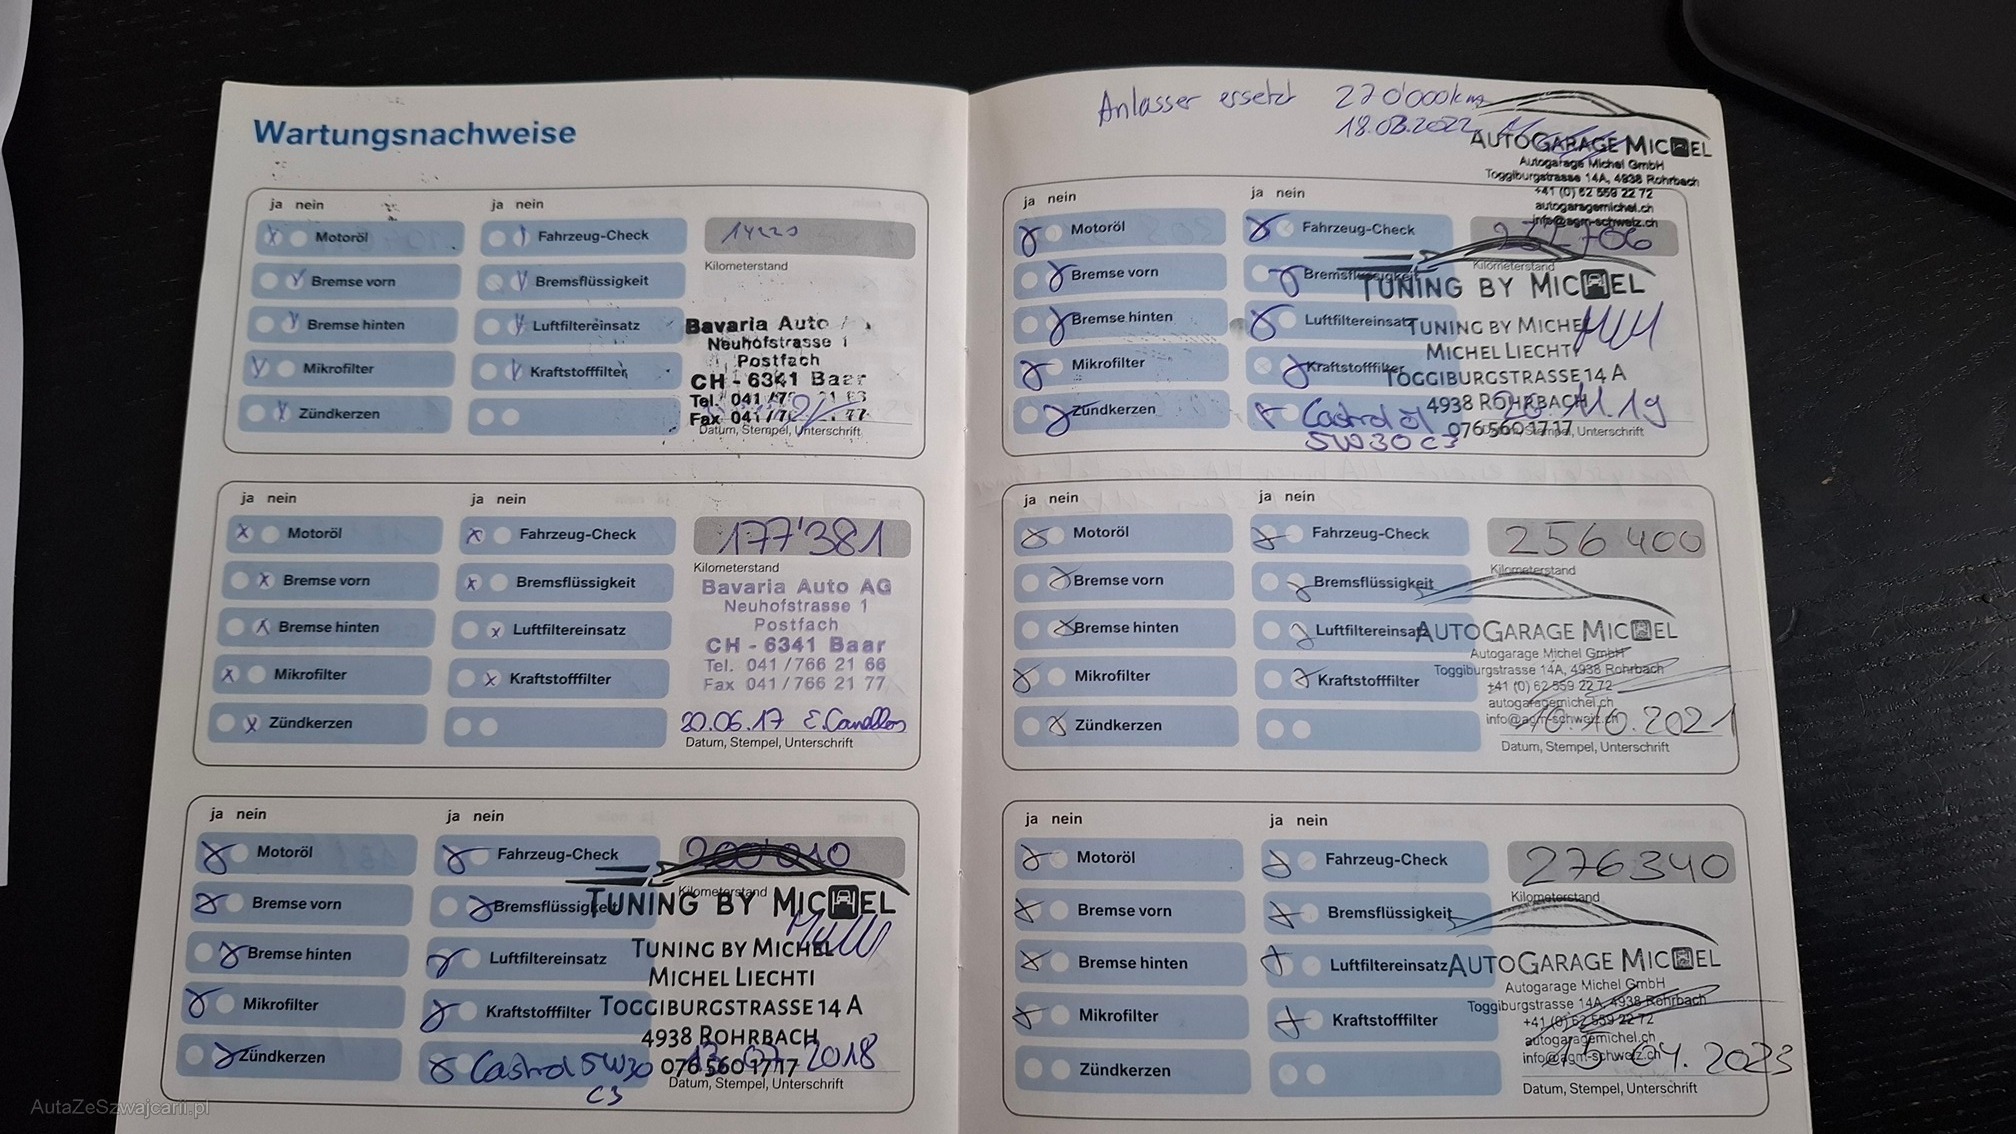 Wartungsnachweise
ja nein
ja nein
Motoröl
Fahrzeug-Check
Bremse vorn
Bremsflüssigkeit
Kilometerstand
Bremse hinten
Luftfiltereinsatz
Mikrofilter
Kraftstofffilter
Zündkerzen
Bavaria Auto
Neuhofstrasse 1
Postfach
CH - 6341 Baar
Tel. 041
Fax 041 77
Datum, Stempel, Unterschrift
ja nein
ja nein
Motoröl
Fahrzeug-Check
177'381
Bremse vorn
Bremsflüssigkeit
Kilometerstand
Bremse hinten
Luftfiltereinsatz
Mikrofilter
Kraftstofffilter
Zündkerzen
Bavaria Auto AG
Neuhofstrasse 1
Postfach
CH - 6341 Baar
Tel. 041/766 21 66
Fax 041/766 21 77
20.06.17
Datum, Stempel, Unterschrift
ja nein
ja nein
Motoröl
Fahrzeug-Check
200'010
Bremse vorn
Bremsflüssigkeit
Kilometerstand
Bremse hinten
Luftfiltereinsatz
Mikrofilter
Kraftstofffilter
Zündkerzen
Castrol 5W30
C3
TUNING BY MICHEL
TUNING BY MICHEL
MICHEL LIECHTI
TOGGIBURGSTRASSE 14 A
4938 ROHRBACH
076 560 17 17
2018
Datum, Stempel, Unterschrift
Anlasser ersetzt 270'000km
18.03.2022
AUTOGARAGE MICHEL
Autogarage Michel GmbH
Toggiburgstrasse 14A, 4938 Rohrbach
+41 (0) 62 559 22 72
autogaragemichel.ch
info@agm-schweiz.ch
ja nein
ja nein
Motoröl
Fahrzeug-Check
Bremse vorn
Bremsflüssigkeit
Kilometerstand
Bremse hinten
Luftfiltereinsatz
Mikrofilter
Kraftstofffilter
Zündkerzen
Castrol öl
5W30 C3
TUNING BY MICHEL
TUNING BY MICHEL
MICHEL LIECHTI
TOGGIBURGSTRASSE 14 A
4938 ROHRBACH
11.19
076 560 17 17
Datum, Stempel, Unterschrift
ja nein
ja nein
Motoröl
Fahrzeug-Check
256 400
Bremse vorn
Bremsflüssigkeit
Kilometerstand
Bremse hinten
Luftfiltereinsatz
Mikrofilter
Kraftstofffilter
Zündkerzen
AUTOGARAGE MICHEL
Autogarage Michel GmbH
Toggiburgstrasse 14A, 4938 Rohrbach
+41 (0) 62 559 22 72
autogaragemichel.ch
info@agm-schweiz.ch
10.10.2021
Datum, Stempel, Unterschrift
ja nein
ja nein
Motoröl
Fahrzeug-Check
276340
Bremse vorn
Bremsflüssigkeit
Kilometerstand
Bremse hinten
Luftfiltereinsatz
Mikrofilter
Kraftstofffilter
Zündkerzen
AUTOGARAGE MICHEL
Autogarage Michel GmbH
Toggiburgstrasse 14A, 4938 Rohrbach
+41 (0) 62 559 22 72
autogaragemichel.ch
info@agm-schweiz.ch
04.2023
Datum, Stempel, Unterschrift
AutaZeSzwajcarii.pl